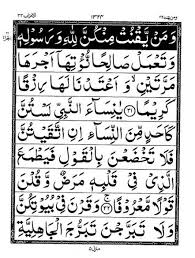 ومن یقنت ۲۲ الاحزاب ۳۳
وَمَنْ يَّقْنُتْ مِنْكُنَّ لِلّٰهِ وَرَسُوْلِهٖ
وَتَعْمَلْ صَالِحًا نُّؤْتِهَآ اَجْرَهَا
مَرَّتَيْنِ ۙ وَاَعْتَدْنَا لَهَا رِزْقًا
كَرِيْمًا ﴿۳۱﴾ يٰنِسَآءَ النَّبِىِّ لَسْتُنَّ
كَاَحَدٍ مِّنَ النِّسَآءِ اِنِ اتَّقَيْتُنَّ
فَلَا تَخْضَعْنَ بِالْقَوْلِ فَيَطْمَعَ
الَّذِىْ فِىْ قَلْبِهٖ مَرَضٌ وَّقُلْنَ
قَوْلًا مَّعْرُوْفًا ﴿۳۲﴾ وَقَرْنَ فِىْ بُيُوْتِكُنَّ
وَلَا تَبَرَّجْنَ تَبَرُّجَ الْجَاهِلِيَّةِ
منزل ۵